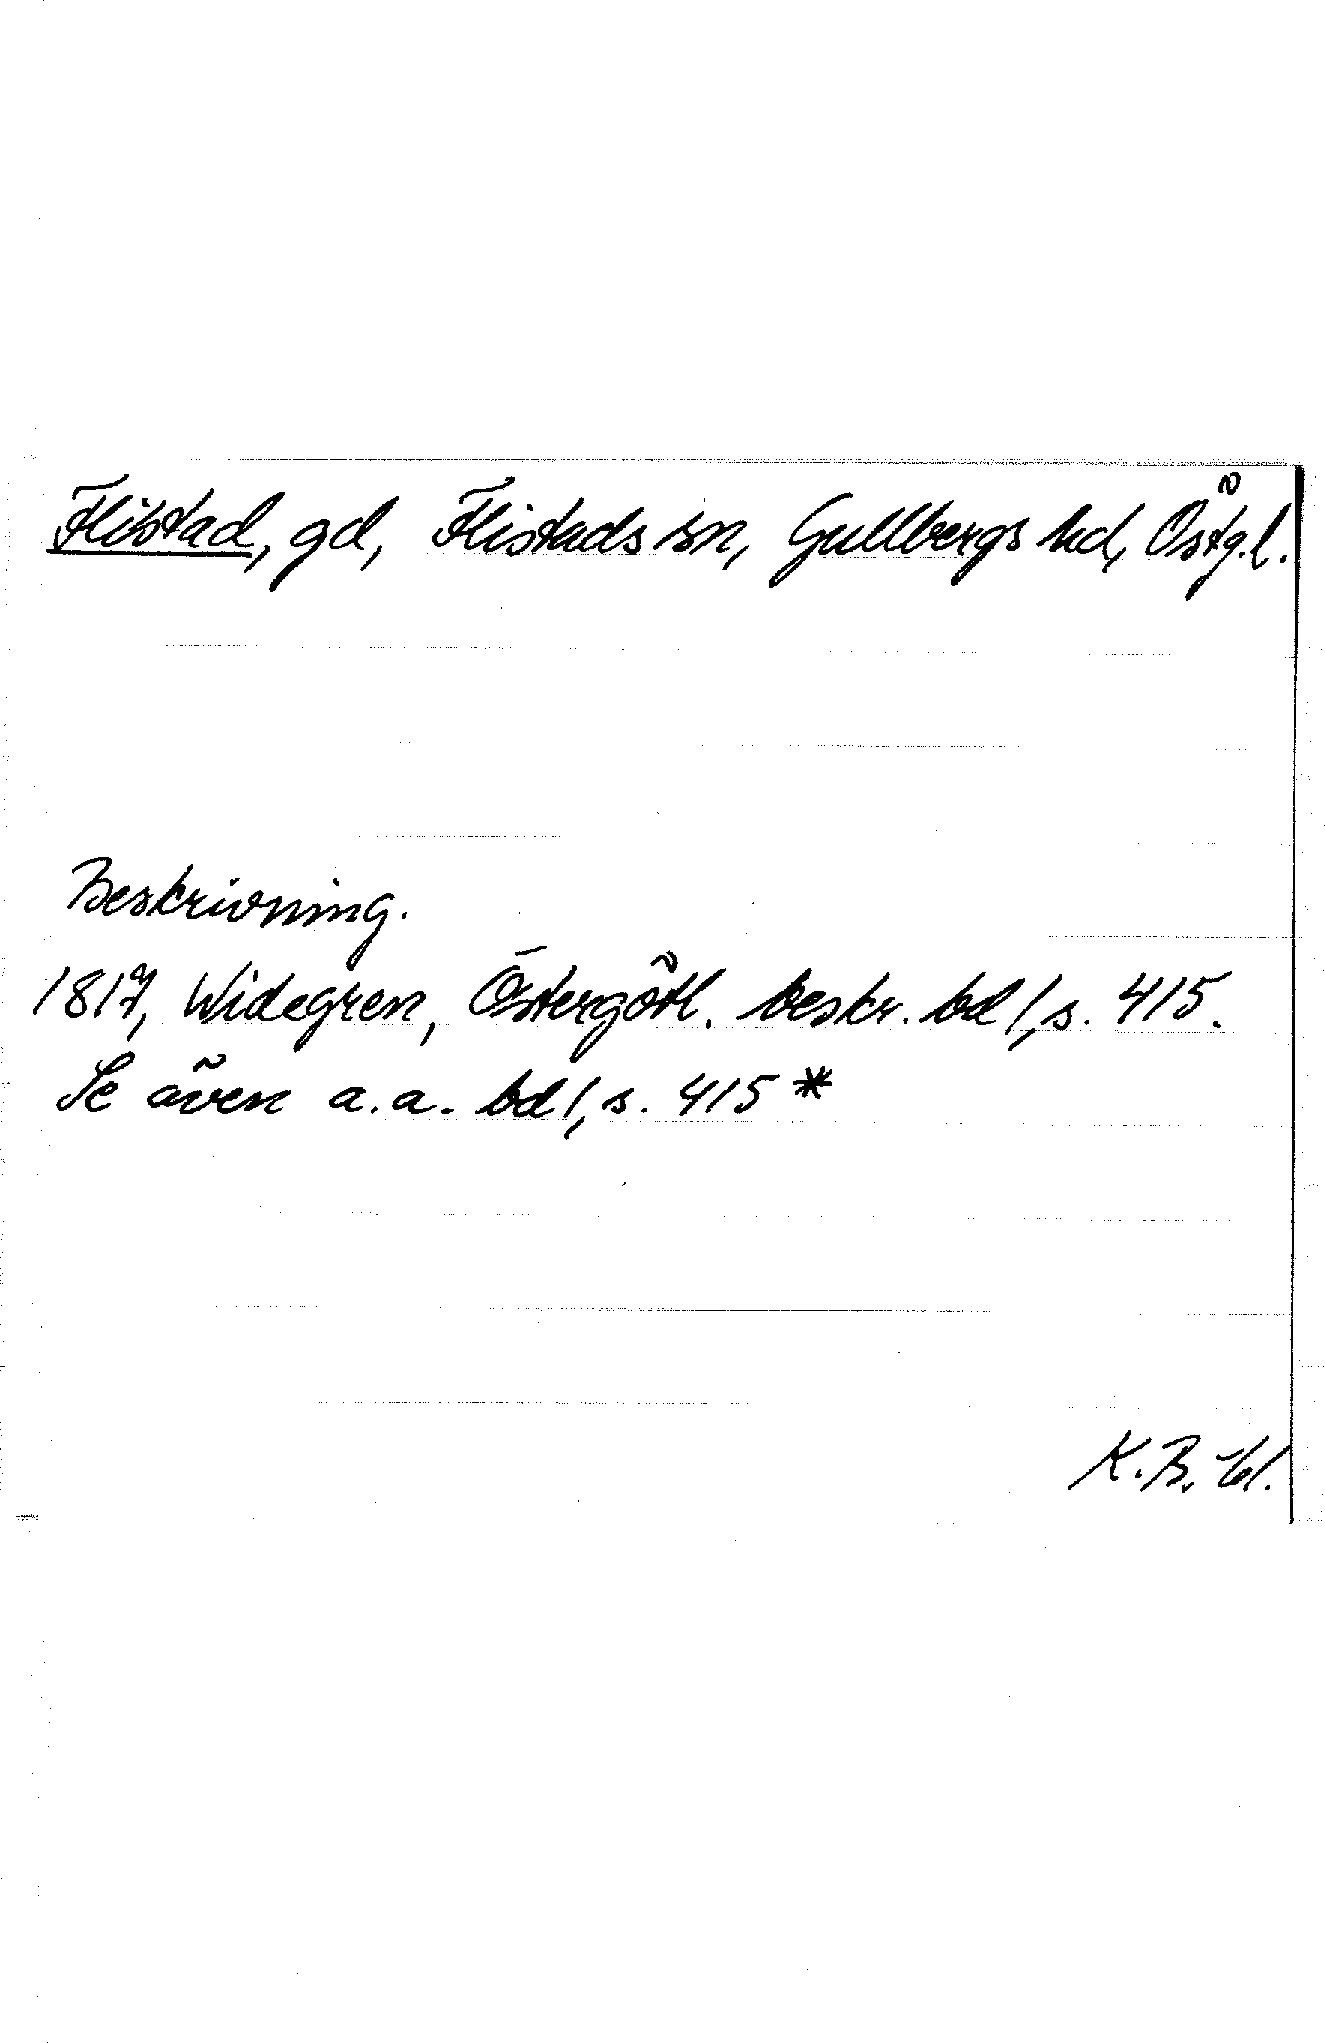 Flistad, gd, Flistads sn, Gullbergs hd, Östg.l.
Beskrivning.
1817, Widegren, Östergötl. beskr. bd 1, s. 415.
Se även a.a. bd 1, s. 415 *
K.B.